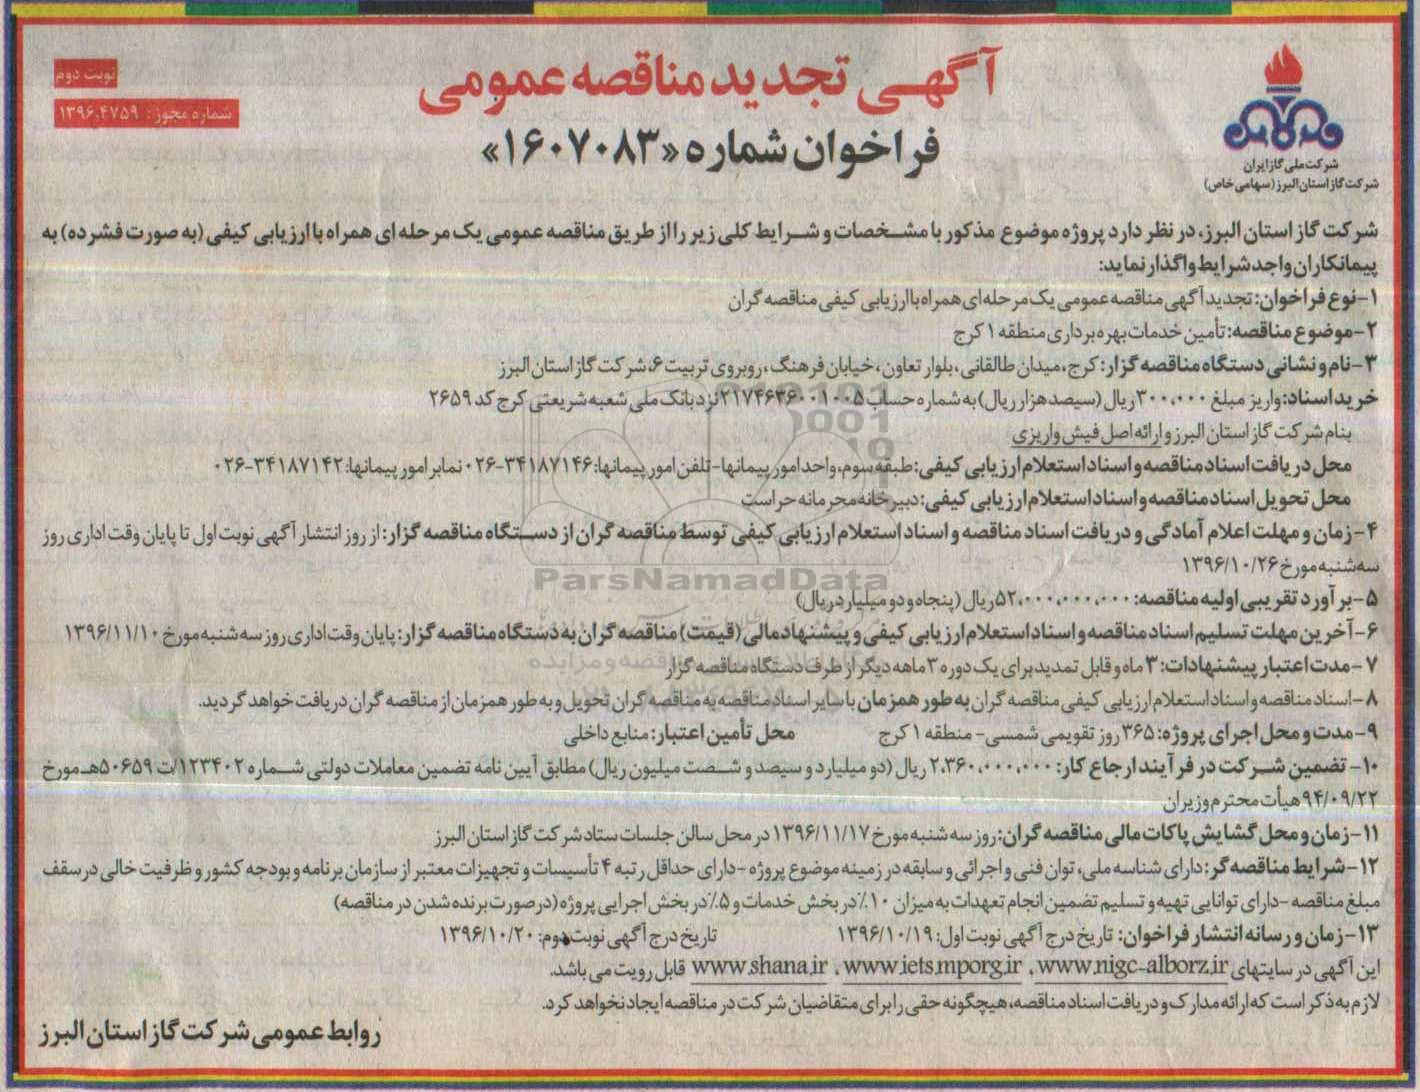 آگهی تجدید مناقصه عمومی
فراخوان شماره «۱۶۰۷۰۸۳»
نوبت دوم
شماره مجوز: ۱۳۹۶,۴۷۵۹
شرکت ملی گاز ایران
شرکت گاز استان البرز (سهامی خاص)
شرکت گاز استان البرز، در نظر دارد پروژه موضوع مذکور با مشخصات و شرایط کلی زیر را از طریق مناقصه عمومی یک مرحله ای همراه با ارزیابی کیفی (به صورت فشرده) به
پیمانکاران واجد شرایط واگذار نماید:
۱-نوع فراخوان: تجدید آگهی مناقصه عمومی یک مرحله ای همراه با ارزیابی کیفی مناقصه گران
۲-موضوع مناقصه: تأمین خدمات بهره برداری منطقه ۱ کرج
۳-نام و نشانی دستگاه مناقصه گزار: کرج، میدان طالقانی، بلوار تعاون، خیابان فرهنگ، روبروی تربیت ۶، شرکت گاز استان البرز
خرید اسناد: واریز مبلغ ۳۰۰,۰۰۰ ریال (سیصد هزار ریال) به شماره حساب ۲۱۷۴۶۳۶۰۰۱۰۰۵ نزد بانک ملی شعبه شریعتی کرج کد ۲۶۵۹
بنام شرکت گاز استان البرز و ارائه اصل فیش واریزی
محل دریافت اسناد مناقصه و اسناد استعلام ارزیابی کیفی: طبقه سوم، واحد امور پیمانها-تلفن امور پیمانها: ۳۴۱۸۷۱۴۶-۰۲۶ نمابر امور پیمانها: ۳۴۱۸۷۱۴۲-۰۲۶
محل تحویل اسناد مناقصه و اسناد استعلام ارزیابی کیفی: دبیرخانه محرمانه حراست
۴-زمان و مهلت اعلام آمادگی و دریافت اسناد مناقصه و اسناد استعلام ارزیابی کیفی توسط مناقصه گران از دستگاه مناقصه گزار: از روز انتشار آگهی نوبت اول تا پایان وقت اداری روز
سه شنبه مورخ ۱۳۹۶/۱۰/۲۶
ParsNamadData
۵-برآورد تقریبی اولیه مناقصه: ۵۲,۰۰۰,۰۰۰,۰۰۰ ریال (پنجاه و دو میلیارد ریال)
۶-آخرین مهلت تسلیم اسناد مناقصه و اسناد استعلام ارزیابی کیفی و پیشنهاد مالی (قیمت) مناقصه گران به دستگاه مناقصه گزار: پایان وقت اداری روز سه شنبه مورخ ۱۳۹۶/۱۱/۱۰
۷-مدت اعتبار پیشنهادات: ۳ ماه و قابل تمدید برای یک دوره ۳ ماهه دیگر از طرف دستگاه مناقصه گزار
۸-اسناد مناقصه و اسناد استعلام ارزیابی کیفی مناقصه گران به طور همزمان با سایر اسناد مناقصه به مناقصه گران تحویل و به طور همزمان از مناقصه گران دریافت خواهد گردید.
۹-مدت و محل اجرای پروژه: ۳۶۵ روز تقویمی شمسی- منطقه ۱ کرج محل تأمین اعتبار: منابع داخلی
۱۰- تضمین شرکت در فرآیند ارجاع کار: ۲,۳۶۰,۰۰۰,۰۰۰ ریال (دو میلیارد و سیصد و شصت میلیون ریال) مطابق آیین نامه تضمین معاملات دولتی شماره ۱۲۳۴۰۲/ت ۵۰۶۵۹هـ مورخ
۹۴/۰۹/۲۲ هیأت محترم وزیران
۱۱-زمان و محل گشایش پاکات مالی مناقصه گران: روز سه شنبه مورخ ۱۳۹۶/۱۱/۱۷ در محل سالن جلسات ستاد شرکت گاز استان البرز
۱۲-شرایط مناقصه گر: دارای شناسه ملی، توان فنی و اجرائی و سابقه در زمینه موضوع پروژه -دارای حداقل رتبه ۴ تأسیسات و تجهیزات معتبر از سازمان برنامه و بودجه کشور و ظرفیت خالی در سقف
مبلغ مناقصه -دارای توانایی تهیه و تسلیم تضمین انجام تعهدات به میزان ۱۰٪ در بخش خدمات و ۵٪ در بخش اجرایی پروژه (در صورت برنده شدن در مناقصه)
۱۳-زمان و رسانه انتشار فراخوان: تاریخ درج آگهی نوبت اول: ۱۳۹۶/۱۰/۱۹ تاریخ درج آگهی نوبت دوم: ۱۳۹۶/۱۰/۲۰
این آگهی در سایتهای www.nigc-alborz.ir ، www.iets.mporg.ir ، www.shana.ir قابل رویت می باشد.
لازم به ذکر است که ارائه مدارک و دریافت اسناد مناقصه، هیچگونه حقی را برای متقاضیان شرکت در مناقصه ایجاد نخواهد کرد.
روابط عمومی شرکت گاز استان البرز